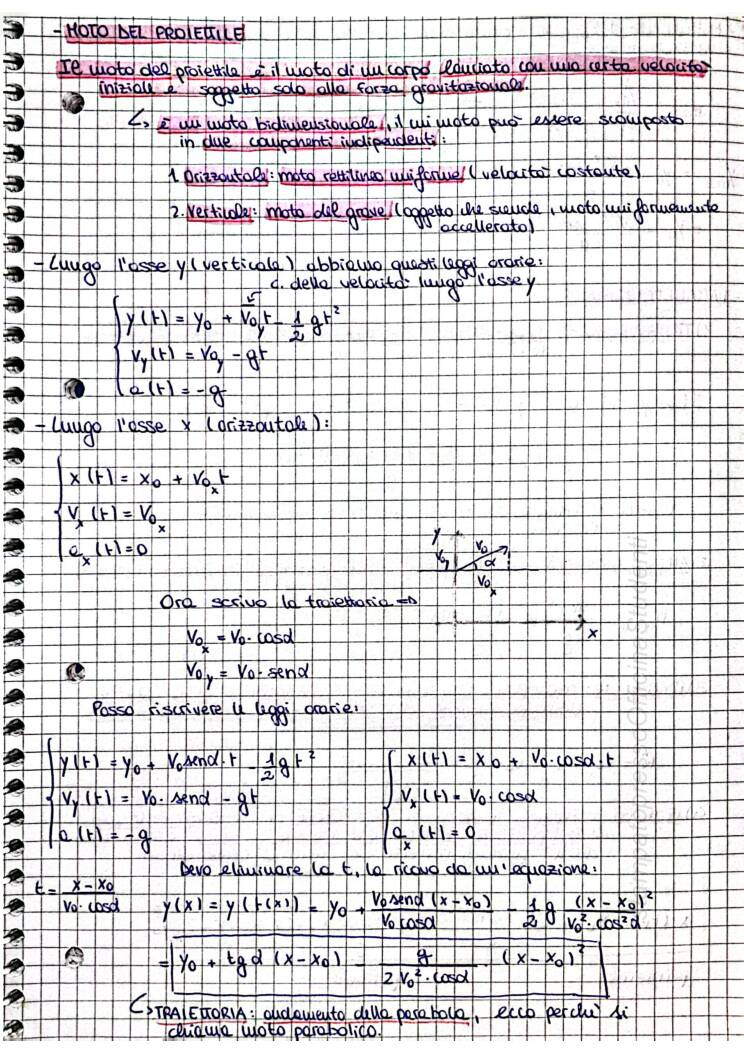 - MOTO DEL PROIETTILE
Il moto del proiettile è il moto di un corpo lanciato con una certa velocità
iniziale e soggetto solo alla forza gravitazionale.
↳ è un moto bidimensionale, il cui moto può essere scomposto
in due componenti indipendenti:
1. Orizzontale: moto rettilineo uniforme (velocità costante)
2. Verticale: moto del grave (oggetto che scende, moto uniformemente
accellerato)
- Lungo l'asse y (verticale) abbiamo questi leggi orarie:
c. della velocità lungo l'asse y
y(t) = y₀ + V₀y t - 1/2 gt²
Vy(t) = V₀y - gt
a(t) = -g
- Lungo l'asse x (orizzontale):
x(t) = x₀ + V₀x t
Vx(t) = V₀x
ax(t) = 0
y
V₀y V₀ α
V₀x
x
Ora scrivo la traiettoria ⇒
V₀x = V₀·cosα
V₀y = V₀·senα
Posso riscrivere le leggi orarie:
y(t) = y₀ + V₀senα·t - 1/2 gt² x(t) = x₀ + V₀·cosα·t
Vy(t) = V₀·senα - gt Vx(t) = V₀·cosα
a(t) = -g ax(t) = 0
Devo eliminare la t, la ricavo da un'equazione:
t = (x-x₀)/(V₀·cosα) y(x) = y(t(x)) = y₀ + V₀senα(x-x₀)/(V₀cosα) - 1/2 g (x-x₀)²/(V₀²·cos²α)
= y₀ + tgα (x-x₀) - g/(2V₀²·cosα) · (x-x₀)²
↳ TRAIETTORIA: andamento della parabola, ecco perchè si
chiama moto parabolico.